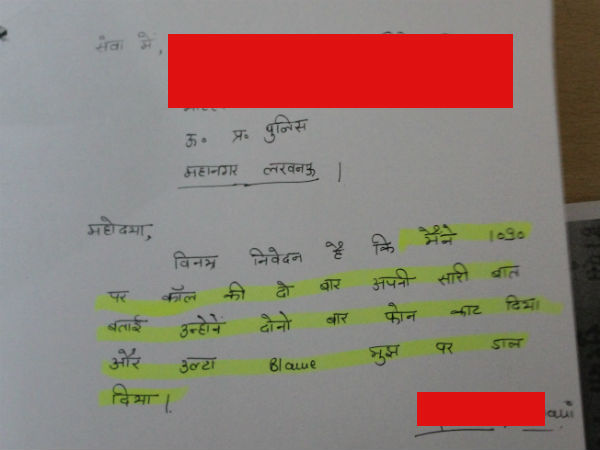 सेवा में,
ऊ॰ प्र॰ पुलिस
महानगर लखनऊ |
महोदया,
विनम्र निवेदन है कि मैंने 1090
पर कॉल की दो बार अपनी सारी बात
बताई उन्होनें दोनो बार फोन काट दिया
और उल्टा Blame मुझ पर डाल
दिया |